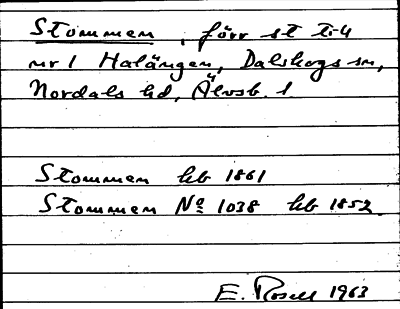 Stommen, förr st till
nr 1 Halängen, Dalskogs sn,
Nordals hd, Älvsb. l
Stommen hb 1861
Stommen No 1038 hb 1852.
E. Rosell 1963